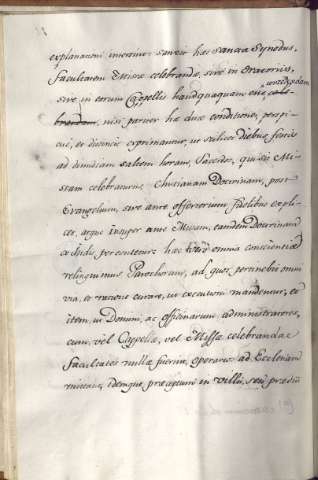 explanationi intersint: sancit hæc sancta Synodus,
Facultatem Missæ celebrandæ, sive in Oratoriis,
sive in eorum Capellis haudquaquam esse concedendam
nisi pariter hæ duæ conditiones, perspi-
cuè, et distincte exprimantur, ut scilicet diebus festis
ad dimidiam saltem horam, Sacerdos, qui ibi Mis-
sam celebraturus, Christianam Doctrinam, post
Evangelium, sive ante offertorium fidelibus expli-
cet, atque insuper ante Missam, eandem Doctrinam
relinquimus Parochorum, ad quos pertinebit omni
via, et ratione curare, ut executioni mandentur, et
item, ut Domini, ac officinarum administratores,
cum, vel Cappellæ, vel Missæ celebrandæ
Facultates nullæ fuerint, operarios ad Ecclesiam
mittant, idemque præceptum in Villis, seu prædiis